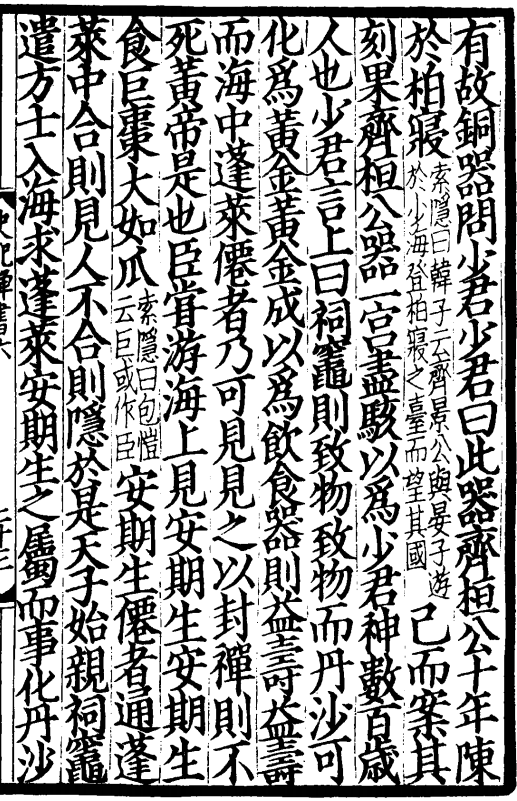 有故銅器問少君少君曰此器齊桓公十年陳
於柏寢索隱曰韓子云齊景公與晏子遊於少海登柏寢之臺而望其國已而案其
刻果齊桓公器一宮盡駭以爲少君神數百歲
人也少君言上曰祠竈則致物致物而丹沙可
化爲黃金黃金成以爲飲食器則益壽益壽
而海中蓬萊僊者乃可見見之以封禪則不
死黃帝是也臣甞游海上見安期生安期生
食巨棗大如瓜索隱曰包愷云巨或作臣安期生僊者通蓬
萊中合則見人不合則隱於是天子始親祠竈
遣方士入海求蓬萊安期生之屬而事化丹沙